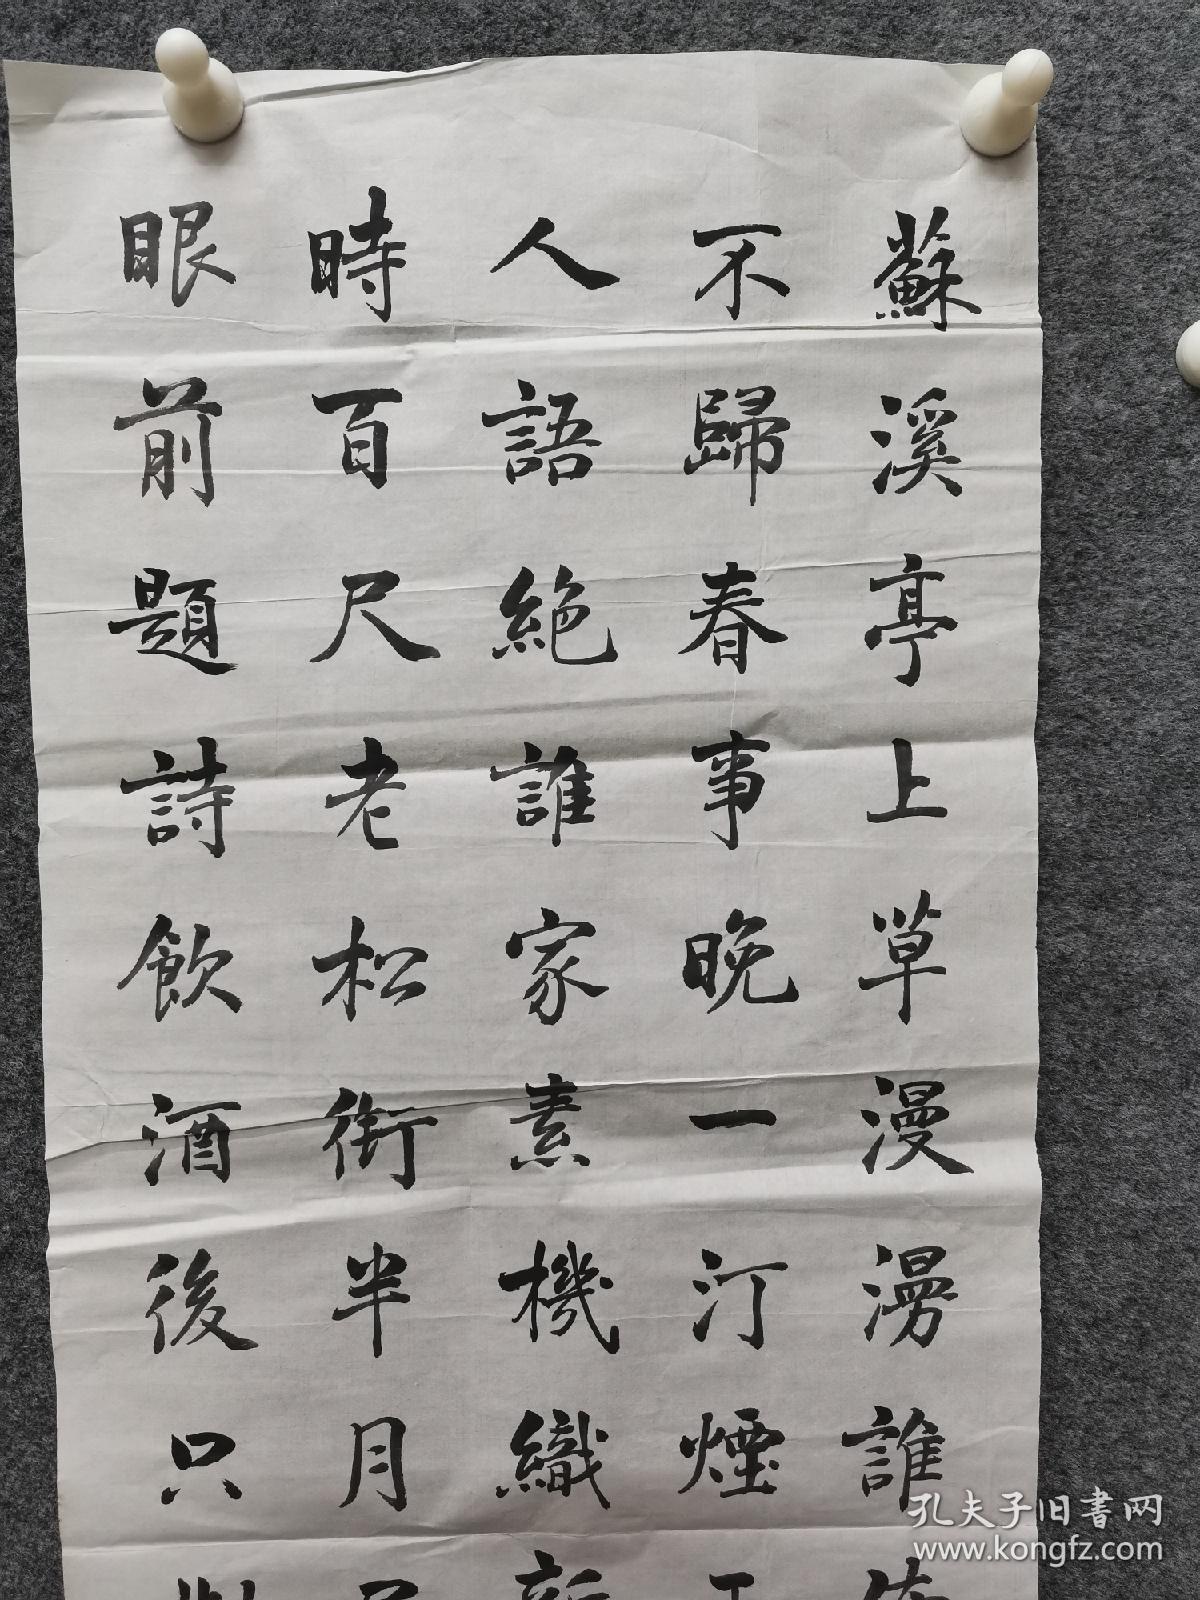 蘇溪亭上草漫漫誰
不歸春事晚一汀煙
人語絶誰家素機織
時百尺老松銜半月
眼前題詩飲酒後只
孔夫子旧书网
www.kongfz.com